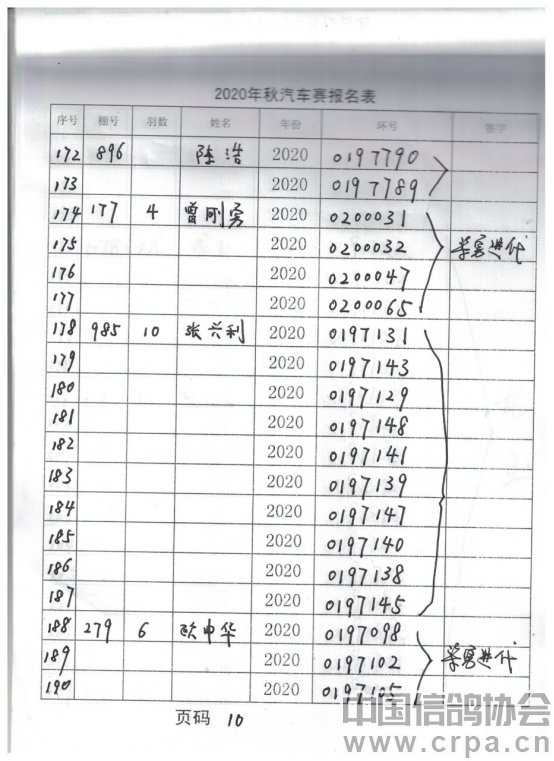 2020年秋汽车赛报名表
序号 棚号 羽数 姓名 年份 环号 签字
172 896 陈浩 2020 0197790
173 2020 0197789
174 177 4 曾刚勇 2020 0200031
175 2020 0200032
176 2020 0200047
177 2020 0200065
178 985 10 张兴利 2020 0197131
179 2020 0197143
180 2020 0197129
181 2020 0197148
182 2020 0197141
183 2020 0197139
184 2020 0197147
185 2020 0197140
186 2020 0197138
187 2020 0197145
188 279 6 欧中华 2020 0197098
189 2020 0197102
190 2020 0197105
页码 10
中国信鸽协会
www.crpa.cn